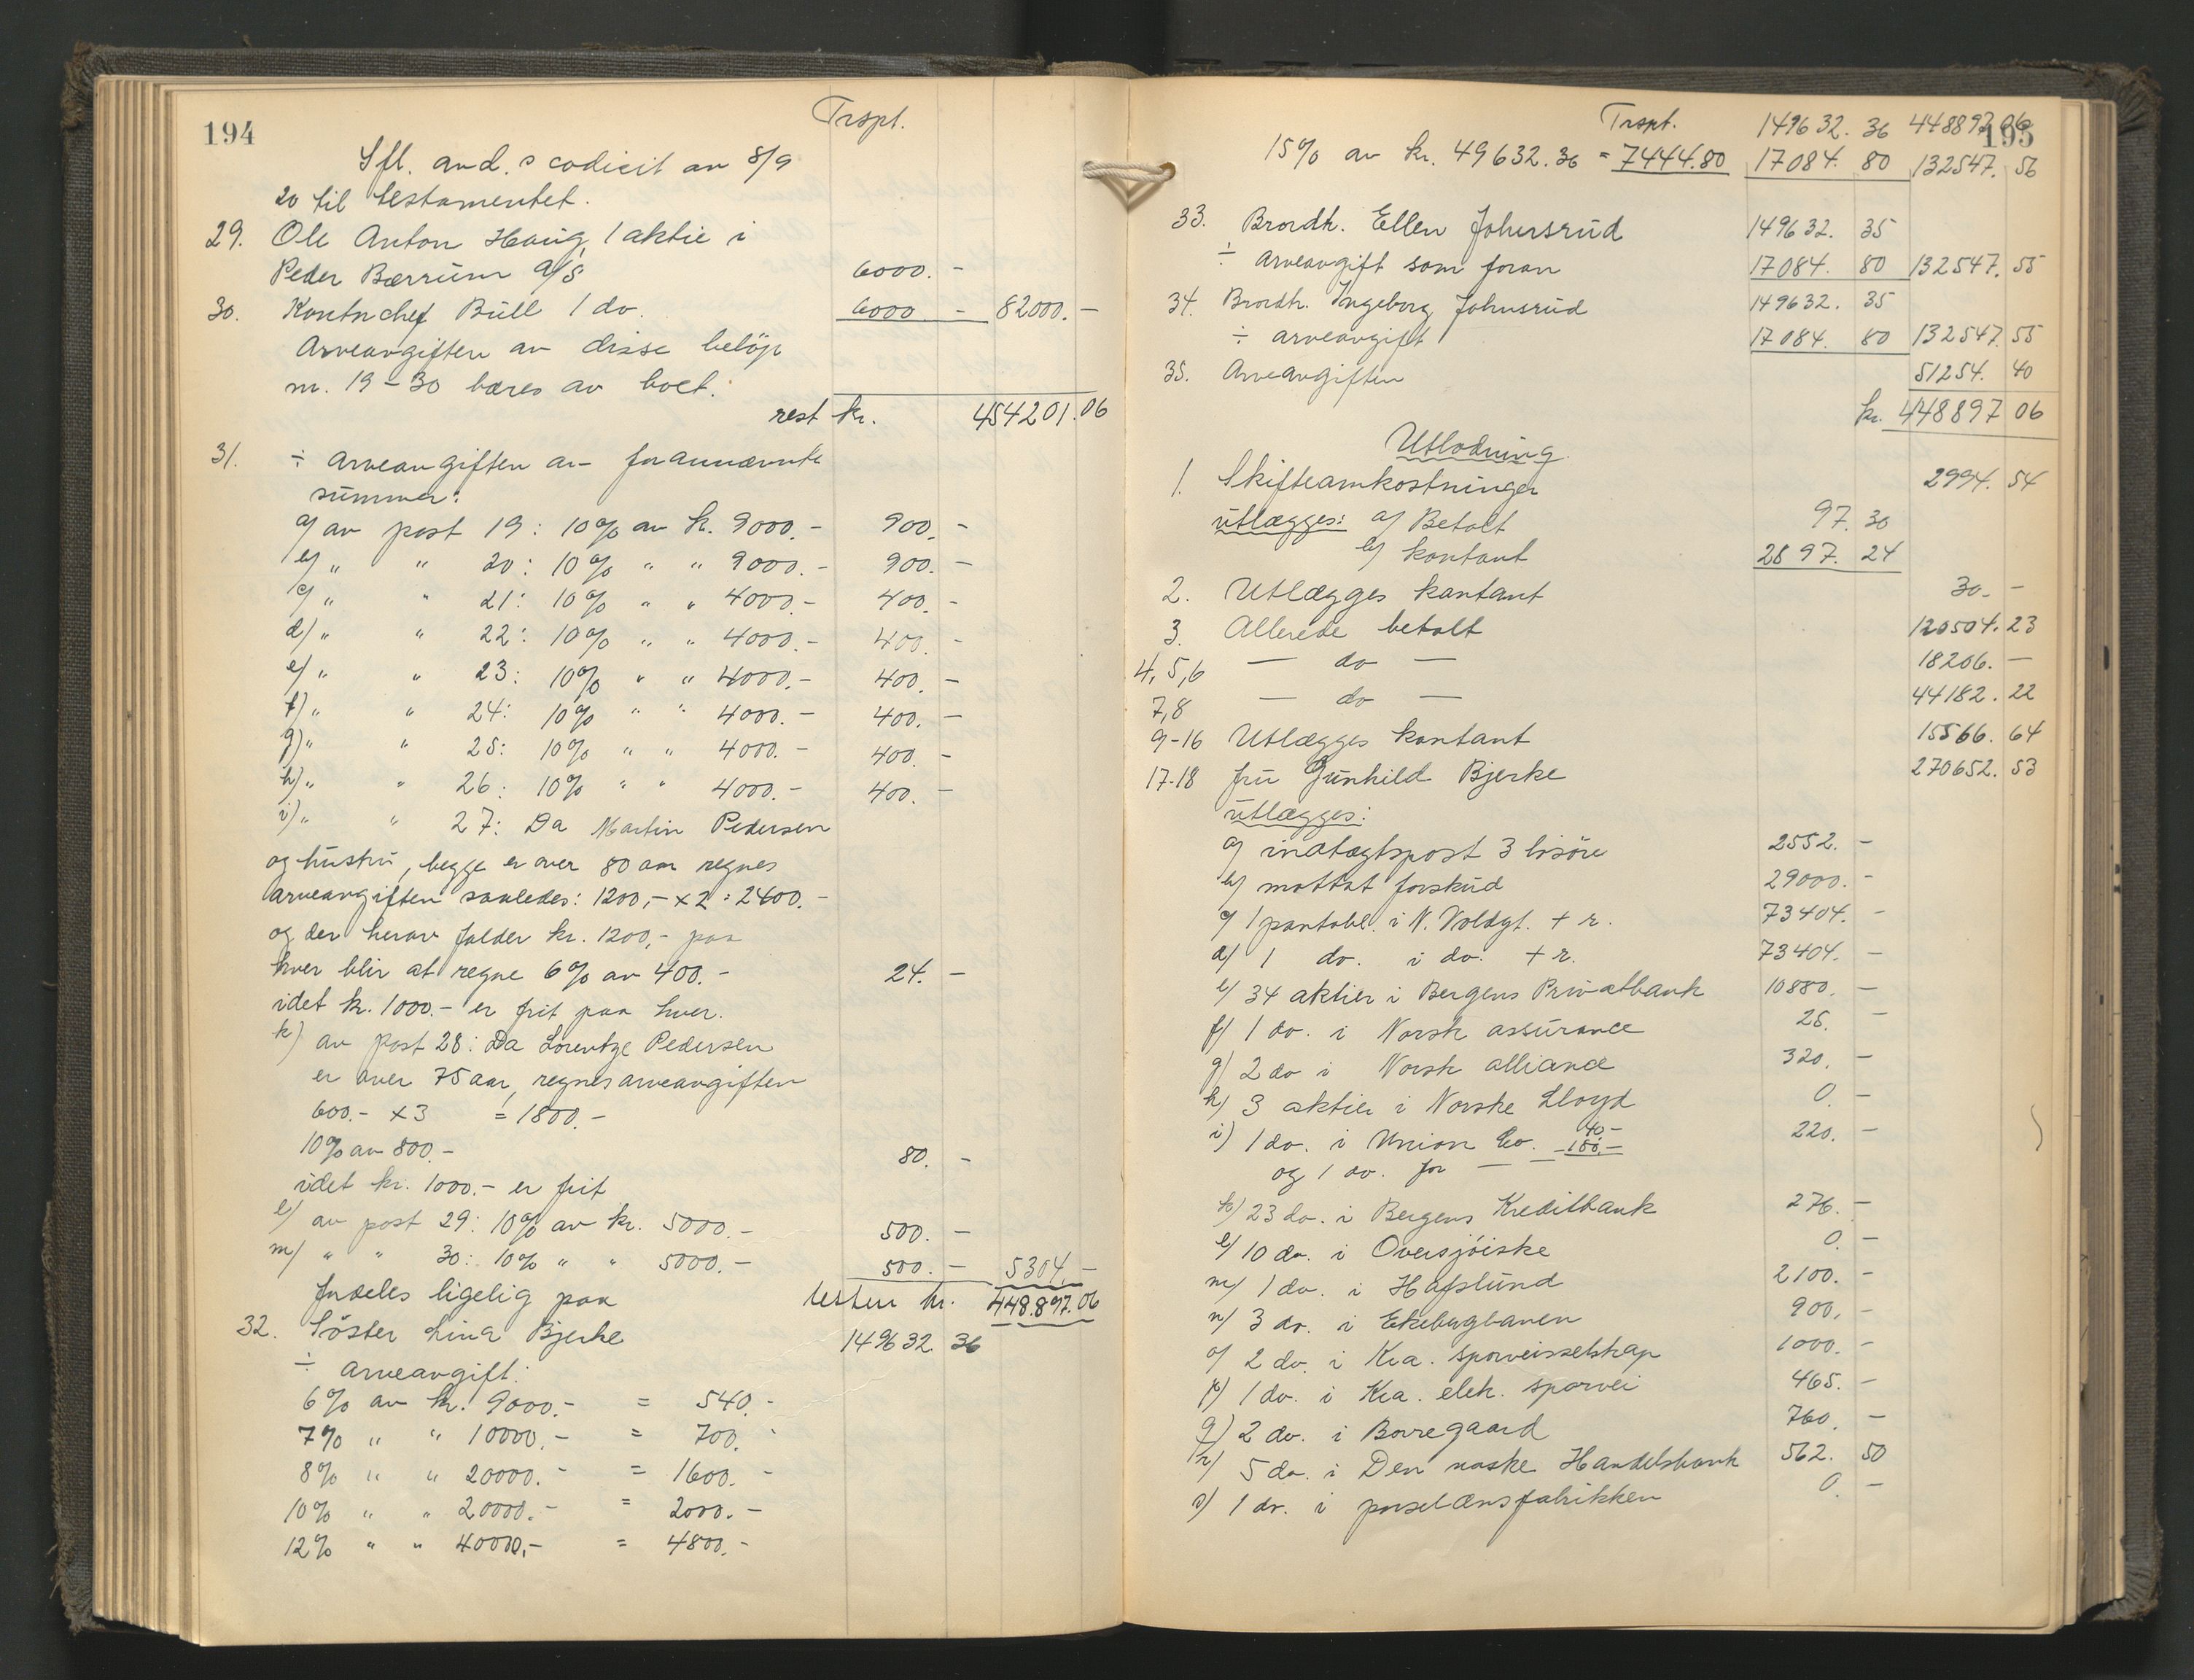 194
Trspt.
Ifl. and. s codicil av 8/9
20 til testamentet.
29. Ole Anton Haug, 1 aktie i
Peder Bærrum A/S 6000. -
30. Kontnchef Bull 1 do. 6000 - 82000. -
Arveavgiften av disse beløp
nr. 19-30 bæres av boet.
rest kr. 454201.06
31. ÷ arveavgiften av forannævnte
summer:
a) av post 19: 10% av kr. 9000.- 900. -
b) " " 20: 10% " " 9000.- 900. -
c) " " 21: 10% " " 4000.- 400. -
d) " " 22: 10% " " 4000.- 400. -
e) " " 23: 10% " " 4000.- 400. -
f) " " 24: 10% " " 4000.- 400. -
g) " " 25: 10% " " 4000.- 400. -
h) " " 26: 10% " " 4000.- 400. -
i) " " 27: Da Martin Pedersen
og hustru, begge er over 80 aar regnes
arveavgiften saaledes: 1200,- x 2 = 2400.-
og der herav falder kr. 1200,- paa
hver blir at regne 6% av 400.- 24. -
idet kr. 1000.- er frit paa hver.
k) av post 28: Da Lorentze Pedersen
er over 75 aar, regnes arveavgiften
600.- x 3 = 1800.-
10% av 800.- 80. -
idet kr. 1000.- er frit
l) av post 29: 10% av kr. 5000.- 500. -
m) " " 30: 10% " " 5000.- 500. - 5304. -
Resten kr. 448.897.06
fordeles ligelig paa
32. Søster Lina Bjerke 149632 36
÷ arveavgift:
6% av kr. 9000.- = 540.-
7% " " 10000.- = 700.-
8% " " 20000.- = 1600.-
10% " " 20000.- = 2000.-
12% " " 40000,- = 4800.-
195
Trspt. 149632. 36 448897 06
15% av kr. 49632.36 = 7444.80 17084. 80 132547. 56
33. Brordt. Ellen Johnsrud 149632. 35
÷ arveavgift som foran 17084. 80 132547. 55
34. Brordt. Ingeborg Johnsrud 149632. 35
÷ arveavgift 17084. 80 132547 55
35. Arveavgiften 51254. 40
kr. 448897 06
Utlodning
1. Skifteomkostninger 2994. 54
utlægges: a) Betalt 97. 30
b) kontant 2897. 24
2. Utlægges kontant 30. -
3. Allerede betalt 120504. 23
4, 5, 6 — do — 18206. -
7, 8 — do — 44182. 22
9-16 Utlægges kontant 15566. 64
17-18 fru Gunhild Bjerke 270652. 53
utlægges:
a) indtægtspost 3 løsøre 2552. -
b) mottat forskud 29000. -
c) 1 pantobl. i N. Voldgt. + r. 73404. -
d) 1 do. i do. + r. 73404. -
e) 34 aktier i Bergens Privatbank 10880. -
f) 1 do. i Norsk assurance 25. -
g) 2 do i Norsk alliance 320. -
h) 3 aktier i Norske Lloyd 0. -
i) 1 do. i Union Co. 40- 220. -
og 1 do. for — — 180.-
k) 23 do. i Bergens Kreditbank 276. -
l) 10 do. i Oversjøiske 0. -
m) 1 do. i Hafslund 2100. -
n) 3 do. i Ekebergbanen 900. -
o) 2 do. i Kra. sporveisselskap 1000. -
p) 1 do. i Kra. elek. sporvei 465. -
q) 2 do. i Borregaard 760. -
r) 5 do. i Den norske Handelsbank 562. 50
s) 1 do. i porselænsfabrikken 0. -